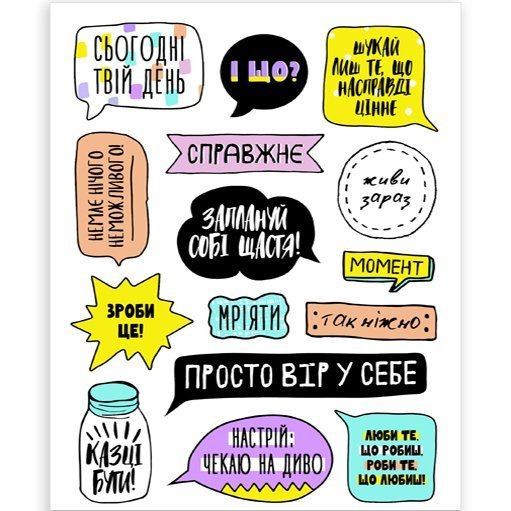 СЬОГОДНІ
ТВІЙ ДЕНЬ
І ЩО?
ШУКАЙ
ЛИШ ТЕ, ЩО
НАСПРАВДІ
ЦІННЕ
НЕМАЄ НІЧОГО
НЕМОЖЛИВОГО!
СПРАВЖНЄ
живи
зараз
ЗАПЛАНУЙ
СОБІ ЩАСТЯ!
МОМЕНТ
ЗРОБИ
ЦЕ!
МРІЯТИ
так ніжно
ПРОСТО ВІР У СЕБЕ
КАЗЦІ
БУТИ!
НАСТРІЙ:
ЧЕКАЮ НА ДИВО
ЛЮБИ ТЕ,
ЩО РОБИШ.
РОБИ ТЕ,
ЩО ЛЮБИШ!